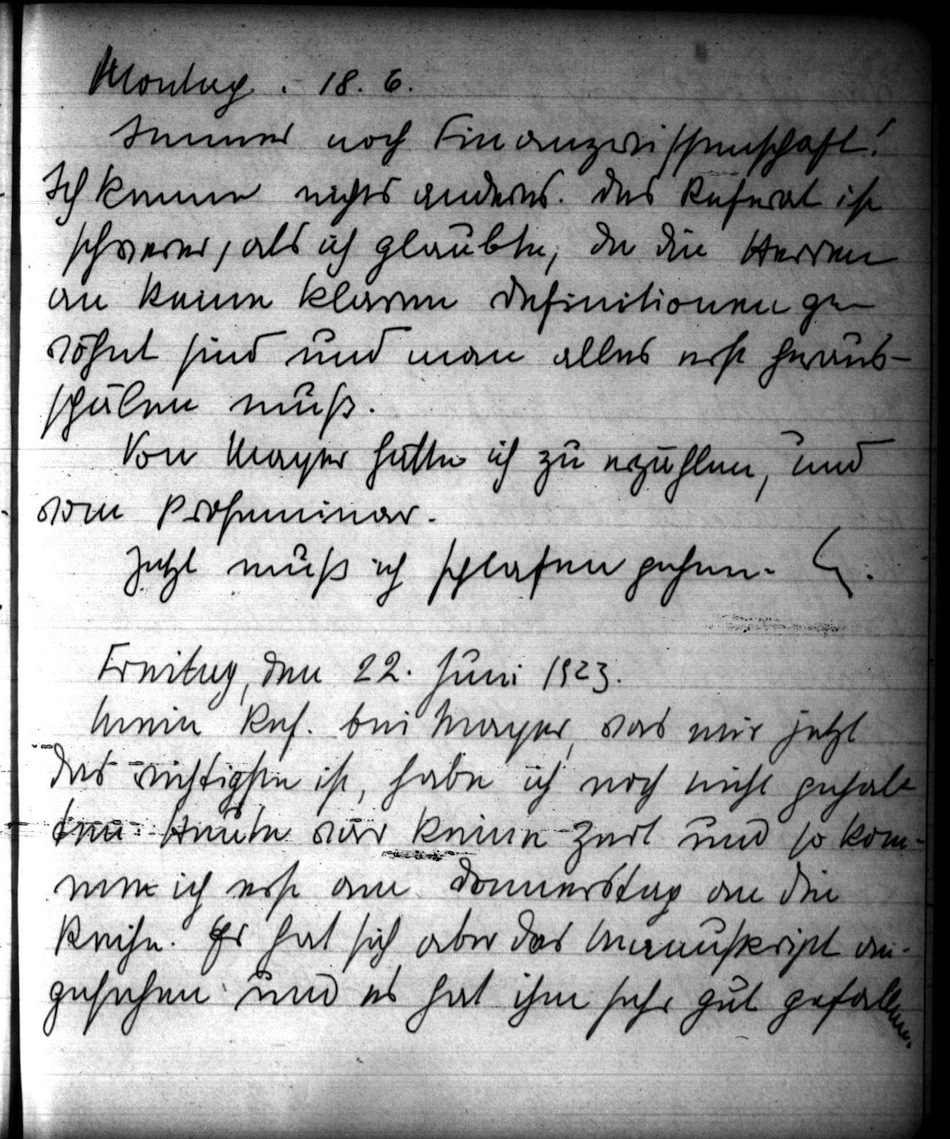 Montag. 18. 6.
Immer noch Finanzwissenschaft!
Ich kenne nichts anderes. Das Referat ist
schwerer, als ich glaubte, da die Herren
an keine klaren Definitionen ge-
wöhnt sind und man alles erst heraus-
schälen muß.
Von Mayer hätte ich zu erzählen, und
vom Proseminar.
Jetzt muß ich schlafen gehen.
Freitag, den 22. Juni 1923.
Mein Ref. bei Mayer, was mir jetzt
das wichtigste ist, habe ich noch nicht gehal-
ten. Heute war keine Zeit und so kom-
me ich erst am Donnerstag an die
Reihe. Er hat sich aber das Manuskript an-
gesehen und es hat ihm sehr gut gefallen.